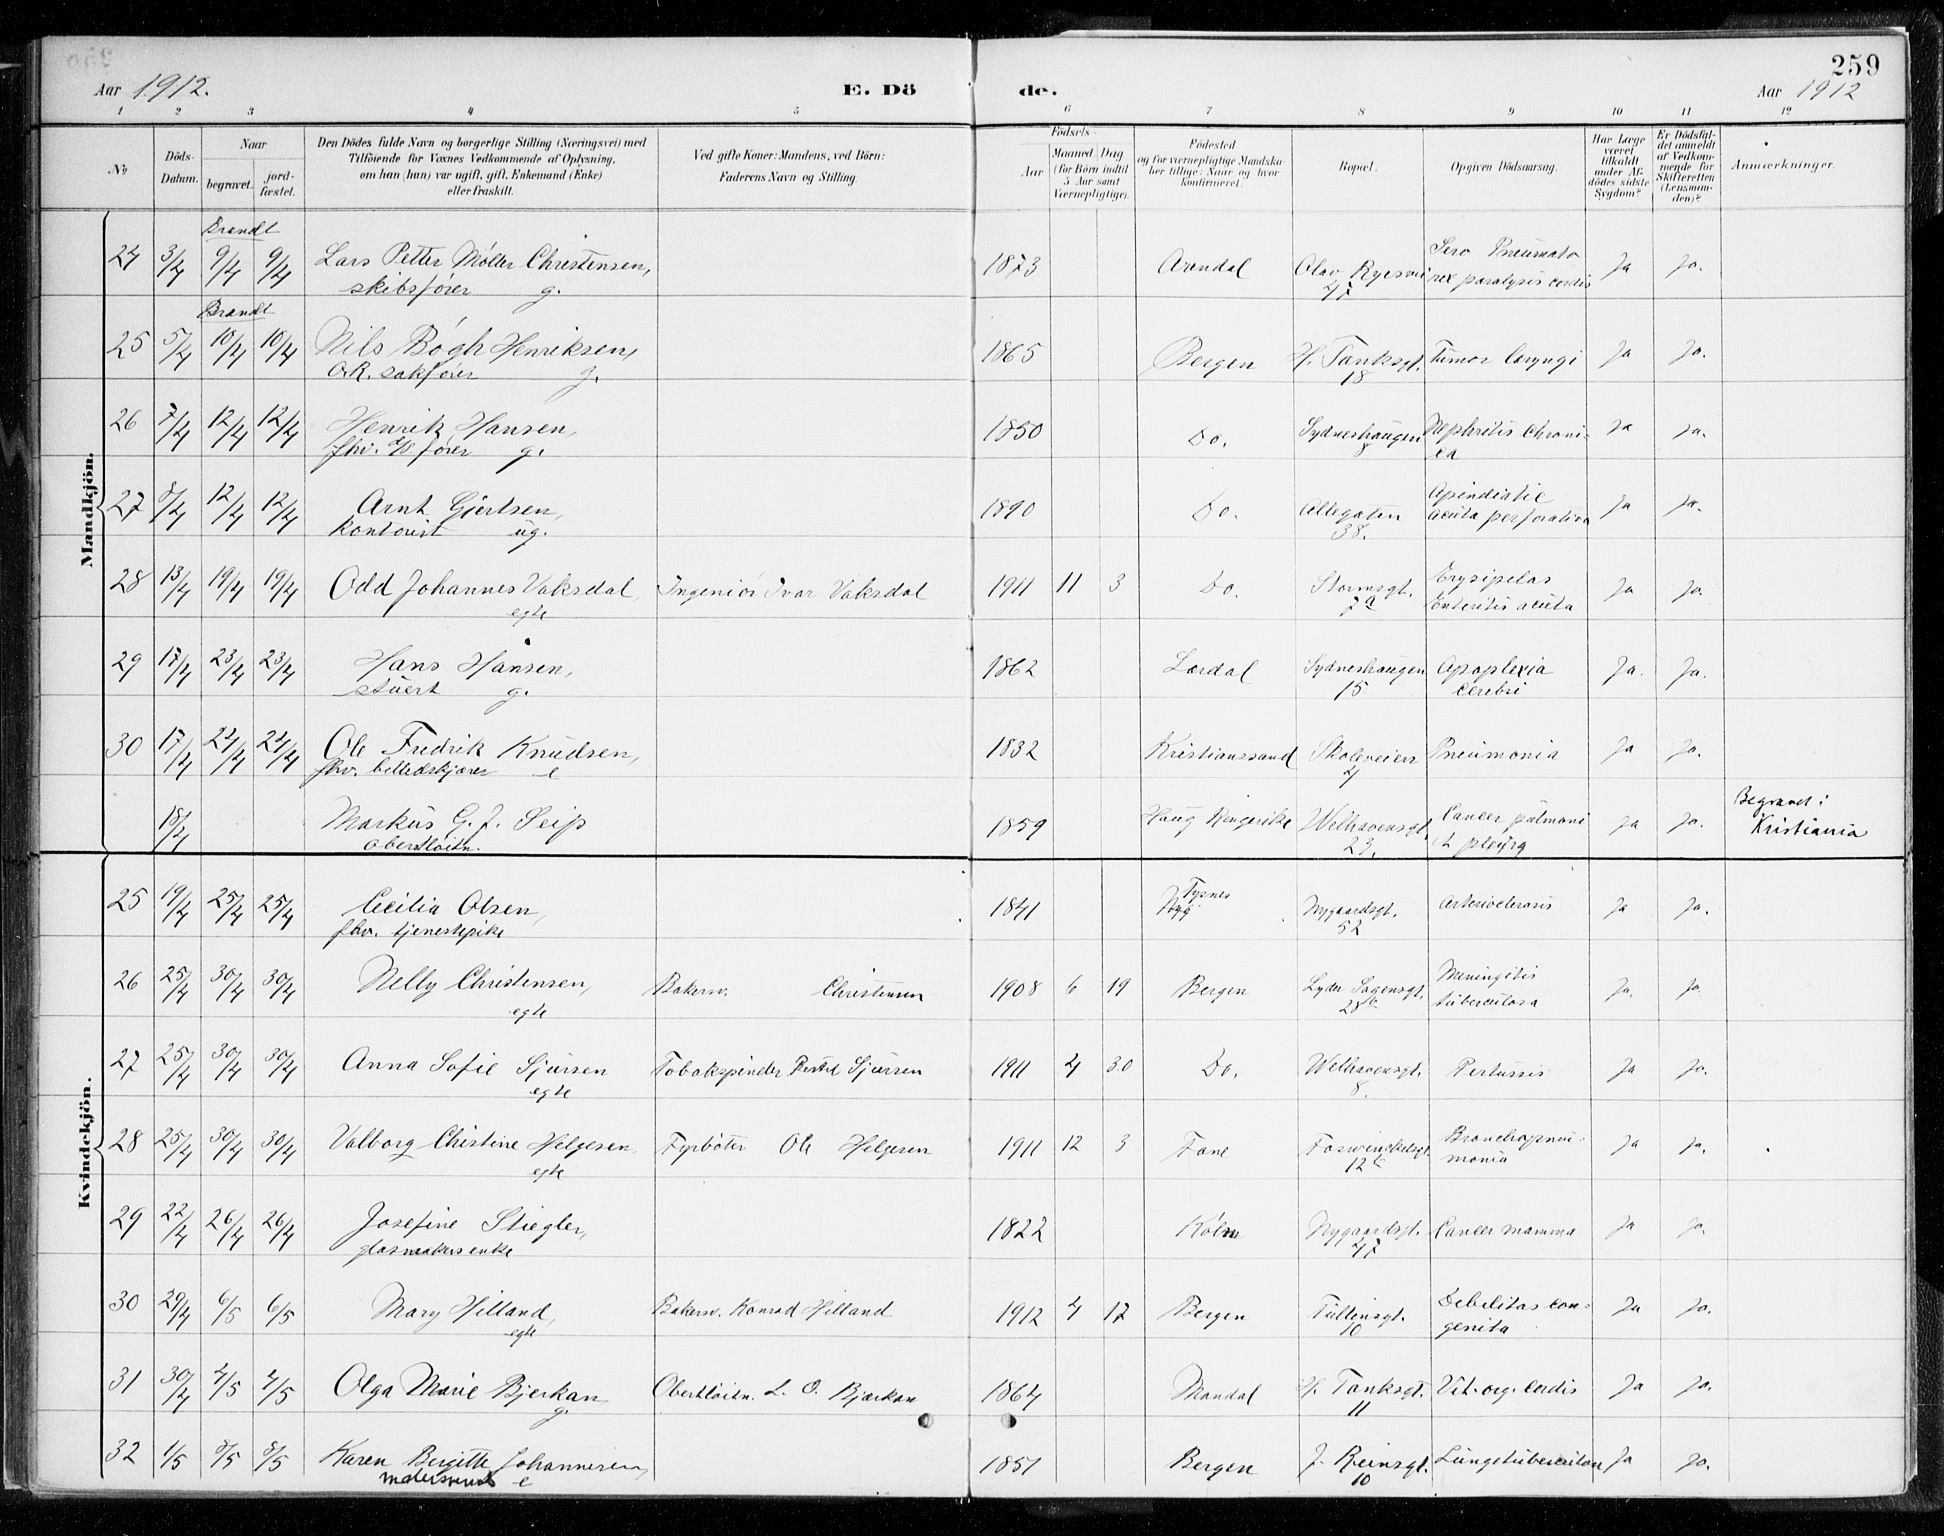 259
Aar 1912. E. Dö de. Aar 1912
1 2 3 4 5 6 7 8 9 10 11 12
No Döds-Datum. Naar begravet. jordfæstet. Den Dödes fulde Navn og borgerlige Stilling (Næringsvei) med Tilföiende for Voxnes Vedkommende af Oplysning, om han (hun) var ugift, gift, Enkemand (Enke) eller fraskilt. Ved gifte Koner: Mandens, ved Börn: Faderens Navn og Stilling. Födsels- Aar Maaned. Dag (for Börn indtil 5 Aar samt Værnepligtige). Födested og for værnepligtige Mandskaber tillige: Naar og hvor konfirmeret. Bopæl. Opgiven Dödsaarsag. Har Læge været tilkaldt under Afdödes sidste Sygdom? Er Dödsfaldet anmeldt af Vedkommende for Skifteretten (Lensmanden)? Anmærkninger.
Mandkjön.
Brændt
24 3/4 9/4 9/4 Lars Petter Møller Christensen, 1873 Arendal Olav Ryesvei Sero Pneumato Ja Ja.
skibsfører g. 47 rex paralysis cordis
Brændt
25 5/4 10/4 10/4 Nils Bøgh Henriksen, 1865 Bergen H. Tanksgt. Tumor laryngi Ja Ja.
O.R. sakfører g. 18
26 7/4 12/4 12/4 Henrik Hansen, 1850 Do. Sydneshaugen Nephritis chroni- Ja Ja.
fhv. fører g. 8 ca
27 8/4 12/4 12/4 Arnt Gjertsen, 1890 Do. Allegaten Apindiatic Ja Ja.
kontorist ug. 38. acuta perforativa
28 13/4 19/4 19/4 Odd Johannes Vaksdal, Ingeniør Ivar Vaksdal 1911 11 3 Do. Stormsgt. Erysipelas Ja Ja.
egte 7a Enteritis acuta
29 17/4 23/4 23/4 Hans Hansen, 1862 Lærdal Sydneshaugen Apoplexia Ja. Ja.
stuert g. 15 cerebri
30 17/4 24/4 24/4 Ole Fredrik Knudsen, 1832 Kristianssand Skoleveien Pneumonia Ja Ja.
fhv. billedskjærer e 4
18/4 Markus G. J. Seip 1859 Haug Ringerike Welhavensgt. Cancer pulmoni Ja Ja. Begravet i
oberstløitn. 29. et pleura Kristiania
Kvindekjön.
25 19/4 25/4 25/4 Cecilia Olsen, 1841 Tysnes Nygaardsgt. Arteriosclerosis Ja Ja.
fhv. tjenestepike 52
26 25/4 30/4 30/4 Nelly Christensen, Bakersv. Christensen 1908 6 19 Bergen Lyder Sagensgt. Meningitis Ja. Ja
egte 28b tuberculosa
27 25/4 30/4 30/4 Anna Sofie Sjursen Tobakspinder Sjursen 1911 4 30 Do. Welhavensgt. Pertussis Ja Ja.
egte 8.
28 25/4 30/4 30/4 Valborg Christine Helgesen, Fyrbøter Ole Helgesen 1911 12 3 Fane Fosswinckelsgt. Bronchopneu- Ja Ja.
egte 12 monia
29 22/4 26/4 26/4 Josefine Stiegler, 1822 Køln Nygaardsgt. Cancer mamma Ja Ja.
glasmakersenke 47
30 29/4 6/5 6/5 Mary Hilland, Bakersv. Konrad Hilland 1912 4 17 Bergen Tullinsgt. Debilitas con- Ja Ja.
egte 10 genita
31 30/4 4/5 4/5 Olga Marie Bjerkan Oberstløitn. L. O. Bjerkan 1864 Mandal H. Tanksgt. Vit. org. cordis Ja Ja.
g. 11
32 1/5 8/5 8/5 Karen Birgitte Johannesen, 1851 Bergen J. Reinsgt. Lungetuberculose Ja Ja.
e 10